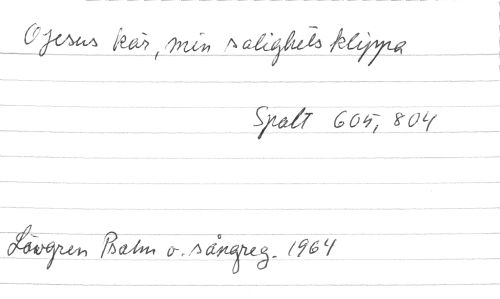 O Jesus kär, min salighets klippa
Spalt 605, 804
Lövgren Psalm o. sångreg. 1964